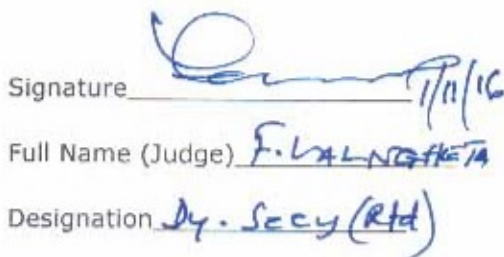 Signature 1/11/16
Full Name (Judge) F. LALNGHETA
Designation Dy. Secy (Rtd)